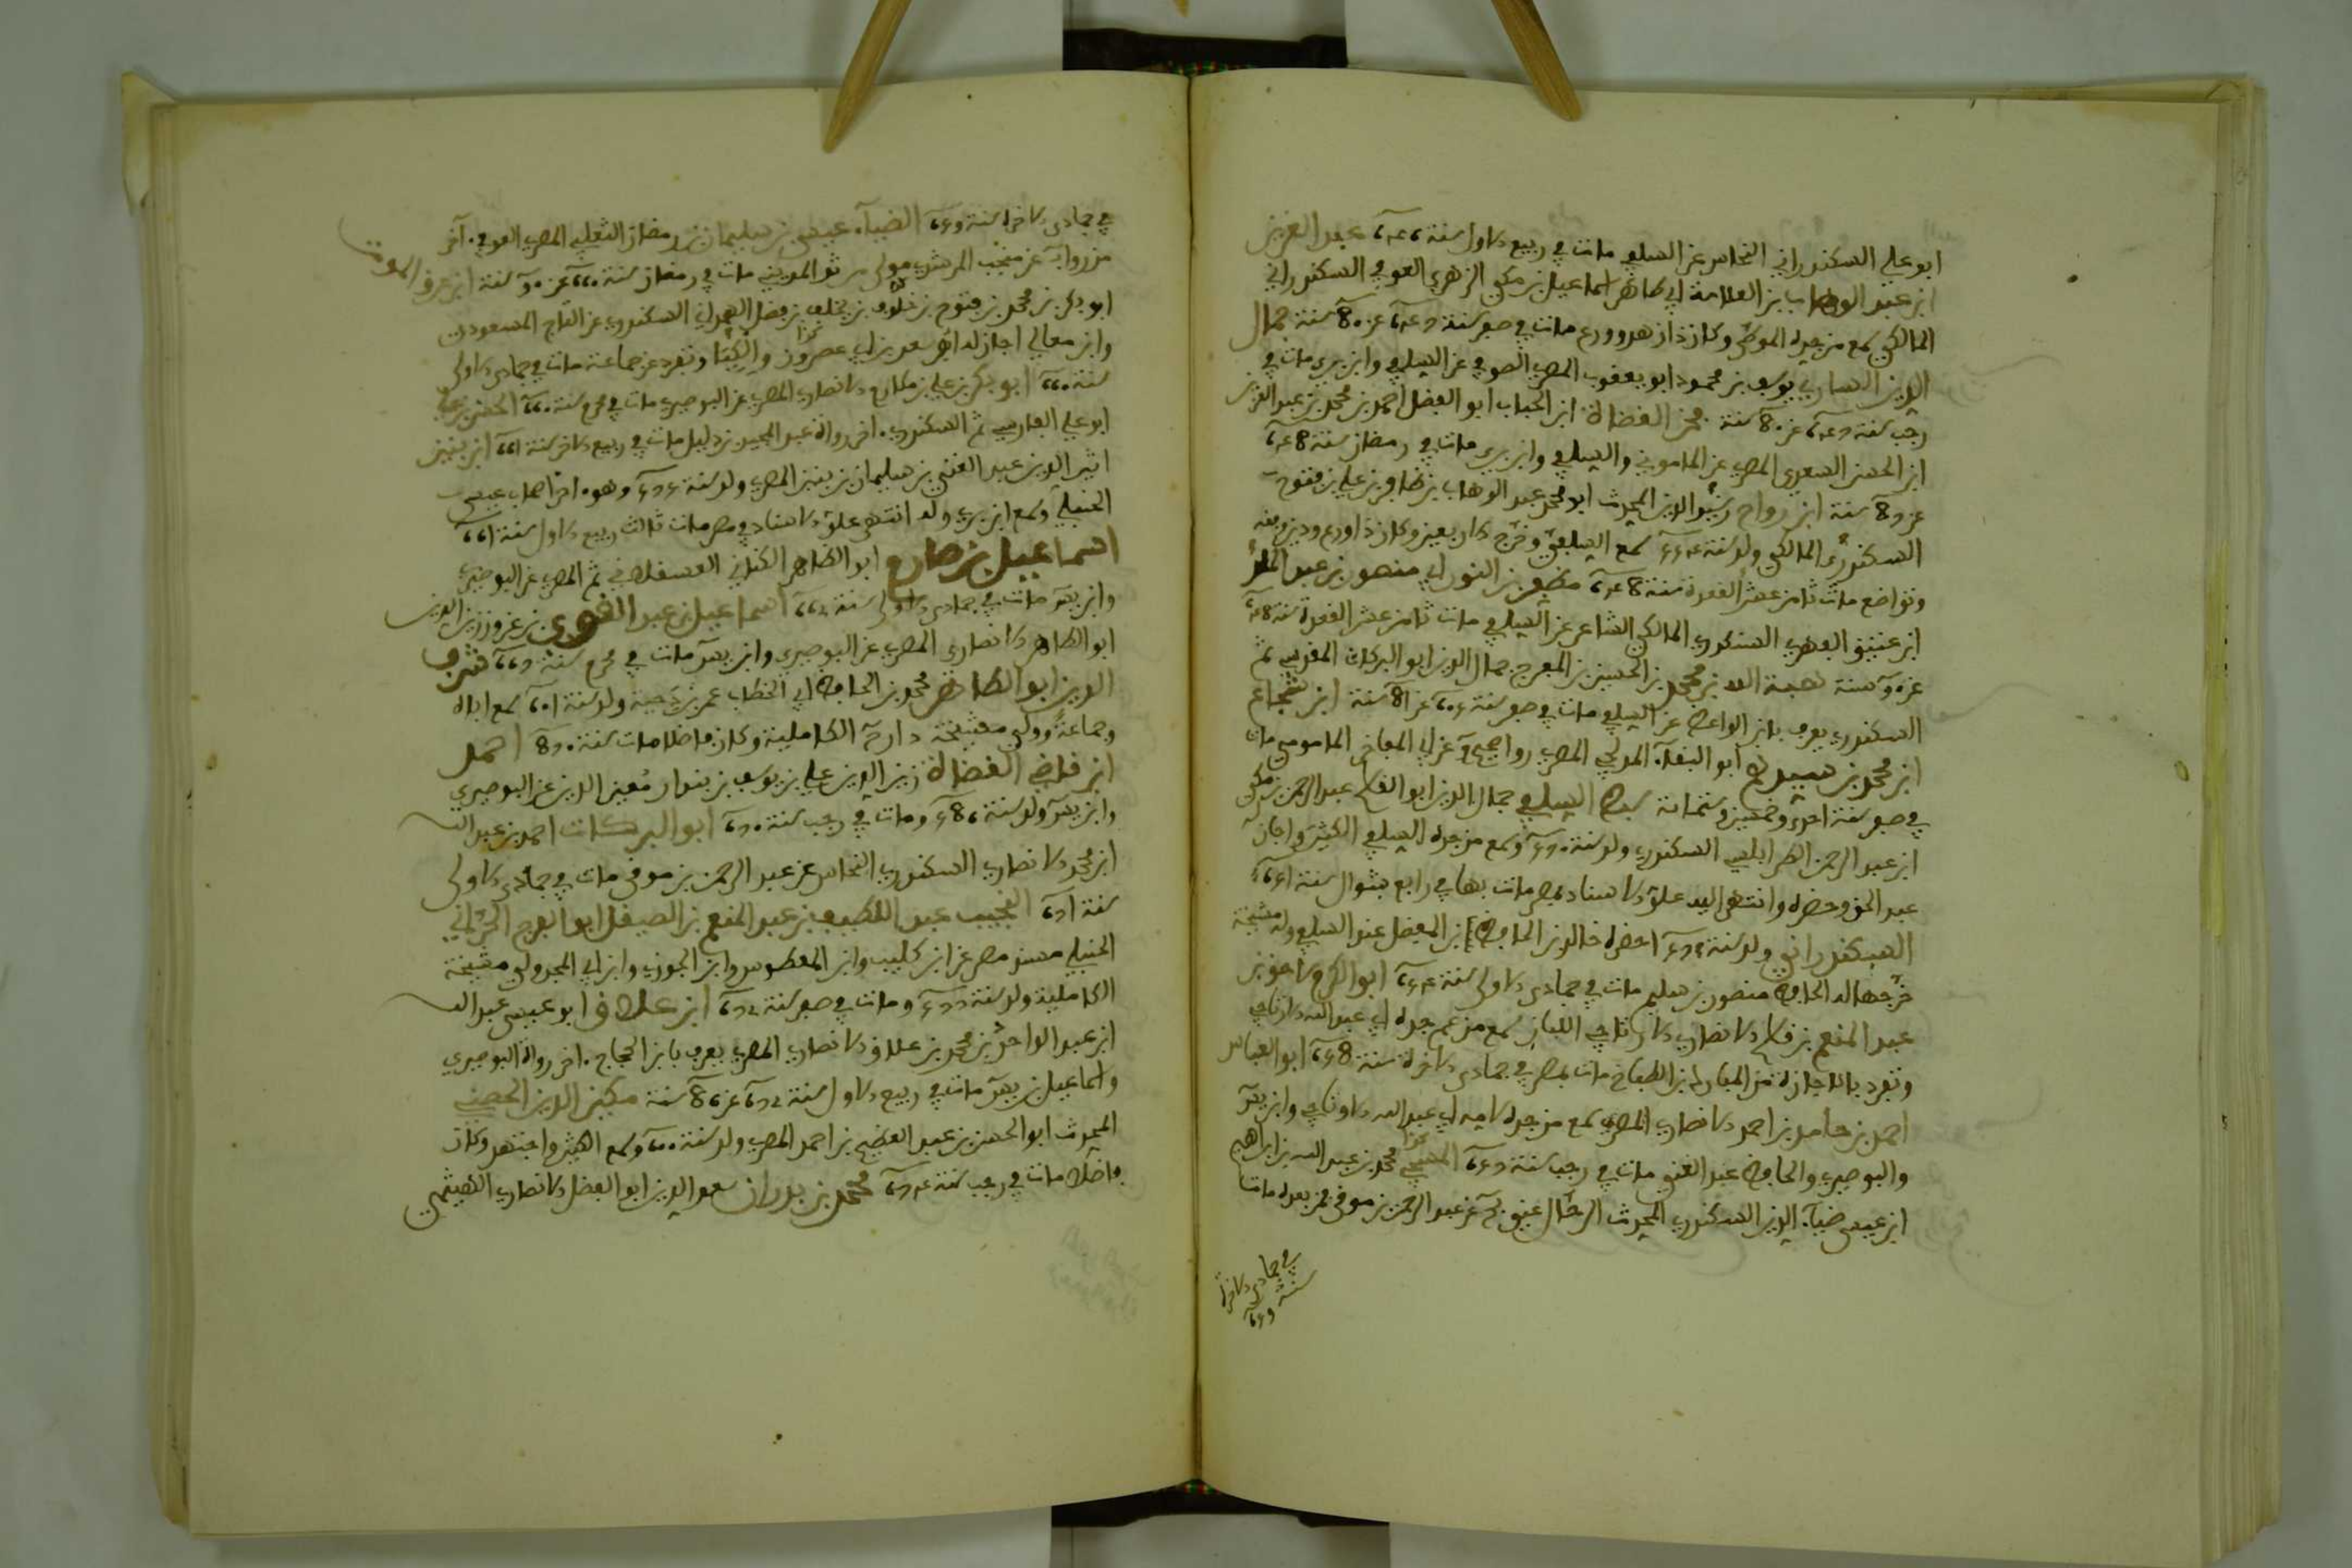 ابو علي السكندراني النحاس عن السلفي مات في ربيع الاول سنة ٦٤٦ عبد العزيز
ابن عبد الوهاب بن العلامة ابي طاهر اسماعيل بن مكي الزهري العوفي السكندراني
المالكي سمع من جده الموطى وكان ذا زهد وورع مات في صفر سنة ٦٤٧ عن 80 سنة جمال
الدين الساوي يوسف بن محمود ابو يعقوب المصري الصوفي عن السلفي وابن بري مات في
رجب سنة ٦٤٧ عن 80 سنة فخر القضاة ابن الحباب ابو الفضل احمد بن محمد بن عبد العزيز
ابن الحسن السعدي المصري عن الماموني والسلفي وابن بري مات في رمضان سنة ٦٤8
عن 8٧ سنة ابن رواح رشيد الدين المحدث ابو محمد عبد الوهاب بن ظافر بن علي بن فتوح
السكندري المالكي ولد سنة ٥٥٤ سمع السلفي وخرج الاربعين وكان ذا ورع ودين وفقه
وتواضع مات ثامن عشر القعدة سنة ٦٤8 مظفر بن الفوي ابي منصور بن عبد الملك
ابن عتيق الفهري السكندري المالكي الشاعر عن السلفي مات ثامن عشر القعدة سنة ٦٤8
عن ٩٠ سنة هبة الله بن محمد بن الحسين بن المفرج جمال الدين ابو البركات المقدسي ثم
السكندري يعرف بابن الواعظ عن السلفي مات في صفر سنة ٦٥٠ عن 81 سنة ابن شجاع
ابن محمد بن سيدهم ابو البقآء المدلجي المصري عن ابي المفاخر الماموني مات
في صفر سنة احدى وخمسين وستمائة سبط السلفي جمال الدين ابو القاسم عبد الرحمن بن مكي
ابن عبد الرحمن الطرابلسي السكندري ولد سنة ٥٧٠ وسمع من جده السلفي الكثير واجاز له
عبد الحق وخطه وانتهى اليه علو الاسناد بمصر مات بها في رابع شوال سنة ٦٥١
السكندراني ولد سنة احضره خاله بن الحافظ ابن المفضل عند السلفي وله مشيخة
خرجها له الحافظ منصور بن سليم مات في جمادى الاولى سنة ابو الكرم لاحق بن
عبد المنعم بن قاسم الانصاري الارتاحي اللبان سمع من عم جده ابي عبد الله الارتاحي
وتفرد بالاجازة من المبارك بن الطباخ مات بمصر في جمادى الاخرة سنة ٦٥8 ابو العباس
احمد بن حامد بن احمد الانصاري المصري سمع من جده لامه ابي عبد الله الارتاحي وابن يس
والبوصيري والحافظ عبد الغني مات في رجب سنة ٦٥٩ المتيجي محمد بن عبد الله بن ابراهيم
ابن عيسى ضيآء الدين السكندري المحدث الرحال عن عبد الرحمن بن موقى فمن بعده مات
في جمادى الاخرة
سنة ٦٥٩
في جمادى الاخرة سنة ٦٥٩ الضيآء عيسى بن سليمان بن رمضان الثعلبي المصري القرافي آخر
من روى عن منجب المرشدي مولى مرشد المديني مات في رمضان سنة ٦٦٠ عن ٩٠ سنة ابن عرق الموت
ابو بكر بن محمد بن فتوح بن خلوف بن يخلف بن مصال الهمداني السكندري عن التاج المسعودي
وابن معالي اجاز له ابو سعد بن ابي عصرون والكبار وتفرد عن جماعة مات في جمادى الاولى
سنة ٦٦٠ ابو بكر بن علي بن مكارم الانصاري المصري عن البوصيري مات في محرم سنة ٦٦٠ الحسن بن علي
ابو علي الفارسي ثم السكندري اخر رواة عبد المجيد بن دليل مات في ربيع الاخر سنة ٦٦١ ابن بنين
اثير الدين عبد الغني بن سليمان بن بنين المصري ولد سنة ٥٧٥ وهو اخر اصحاب عيسى
الحنبلي وسمع ابن بري وله انتهى علو الاسناد في مصر مات ثالث ربيع الاول سنة ٦٦١
اسماعيل بن صارم ابو الطاهر الكناني العسقلاني ثم المصري عن البوصيري
وابن يس مات في جمادى الاولى سنة ٦٦٢ اسماعيل بن عبد القوي بن عزون زين الدين
ابو الطاهر الانصاري المصري عن البوصيري وابن يس مات في محرم سنة ٦٦٧ شرف
الدين ابو الطاهر محمد بن الحافظ ابي الخطاب عمر بن دحية ولد سنة ٦١٠ سمع اباه
وجماعة وولي مشيخة دار الكاملية وكان فاضلا مات سنة احمد
ابن قاضي القضاة زين الدين علي بن يوسف بن بندار معين الدين عن البوصيري
وابن يس ولد سنة ٥8٦ ومات في رجب سنة ٦٧٠ ابو البركات احمد بن عبد الله
ابن محمد الانصاري السكندري النحاس عن عبد الرحمن بن موقى مات في جمادى الاولى
سنة ٦٧١ النجيب عبد اللطيف بن عبد المنعم بن الصيقل ابو الفرج الحراني
الحنبلي مسند مصر عن ابن كليب وابن المعطوس وابن الجوزي وابن ابي المجد ولي مشيخة
الكاملية ولد سنة ومات في صفر سنة ٦٧٢ ابن علاق ابو عيسى عبد الله
ابن عبد الواحد بن محمد بن علاق الانصاري المصري يعرف بابن الحجاج اخر رواة البوصيري
واسماعيل بن يس مات في ربيع الاول سنة ٦٧٢ عن 8٦ سنة مكين الدين الحصني
المحدث ابو الحسن بن عبد العظيم بن احمد المصري ولد سنة ٦٠٠ وسمع الكثير واجتهد وكان
فاضلا مات في رجب سنة ٦٧٤ محمد بن بدران سعد الدين ابو الفضل الانصاري الهيثمي